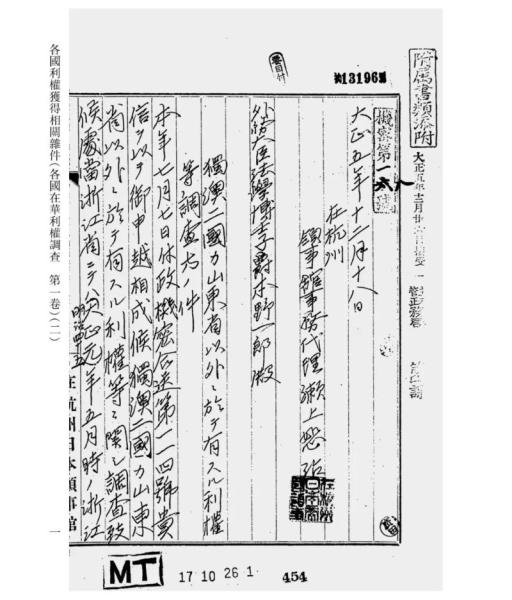 附属書類添附
大正五年十二月廿六日接受
主管政務局
機密第一六號
大正五年十二月十八日
在杭州
領事館事務代理瀬上恕治
外務大臣法學博士子爵本野一郎殿
獨澳二國カ山東省以外ニ於テ有スル利權
等調査方ノ件
本年七月七日付政機密合送第一一四號貴
信ヲ以テ御申越相成候獨澳二國カ山東
省以外ニ於テ有スル利權等ニ関シ調査致
候處當浙江省ニテハ
元年五月時ノ浙江
明治四十五
在杭州日本領事館
各國利權獲得相關雜件(各國在華利權調查 第一卷)(二)
一
13196
MT
17 10 26 1
454